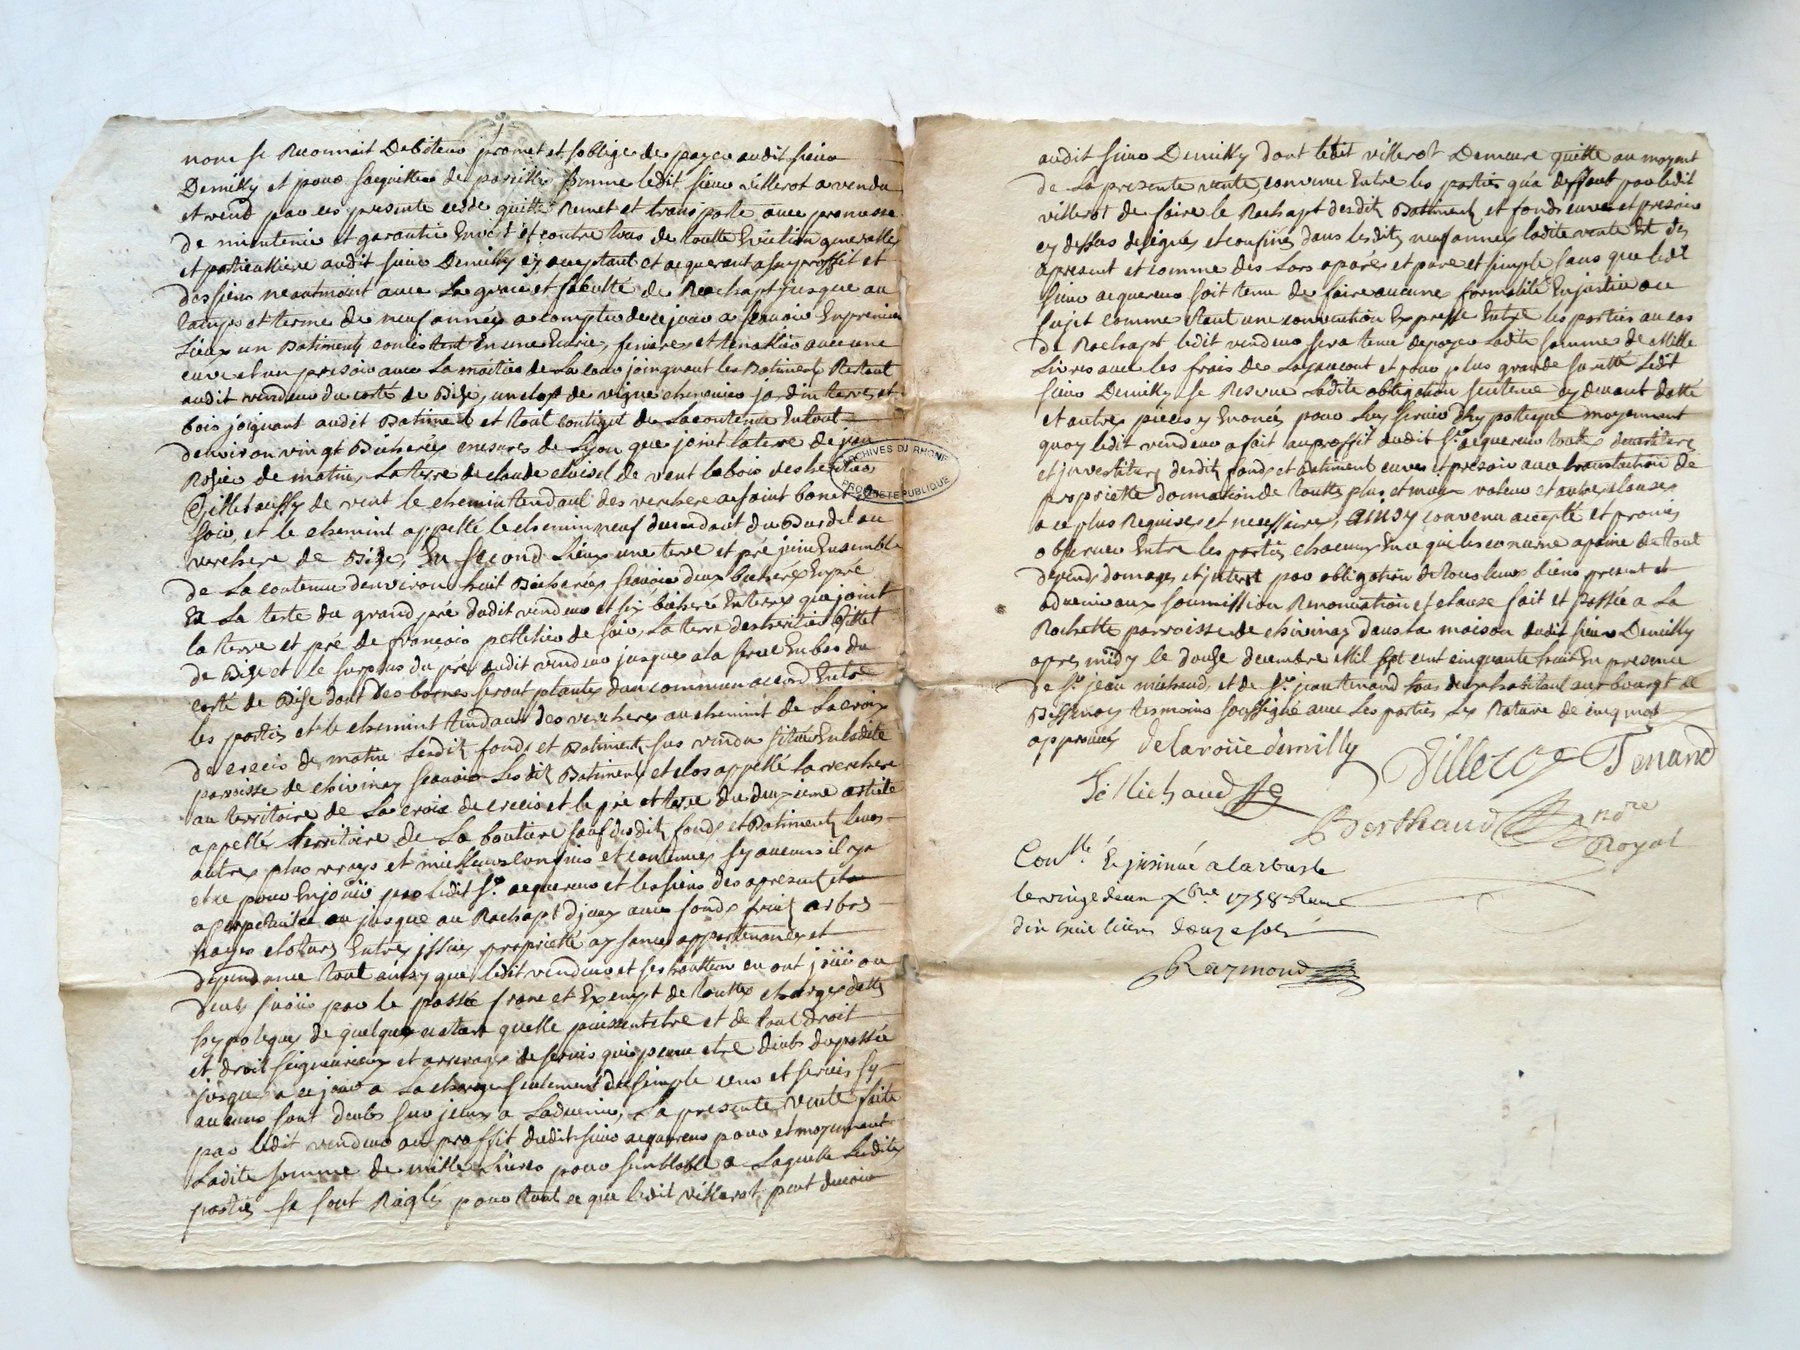 nom se Reconnait Debiteur promet et soblige de payer audit sieur
Demilly et pour sacquitter de pareille somme ledit sieur villerot a vendu
et vend par ces presente cedde quitte Remet et transporte avec promesse
de maintenir et garantir Envers et contre tous de toutte Eviction generalle
et particulliere audit sieur Demilly cy acceptant et acquerant a son proffit et
des siens neantmoint avec la grace et faculté de Rachapt jusque au
temps et terme de neuf années a compter de ce jour a scavoir En premier
Lieux un Batiment concistant En une Ecurie, feniere, et tenallier avec une
cuve et un presoir avec la moitié de la cour joinguant les Batiments Restant
audit vendeur du costé de Bize, un clos de vigne chenevier jardin terre et
bois joignant audit Batiment et tout contigut de la contenue En tout
denviron vingt Bicherées mesures de Lyon que joint la terre de
Rozier de matin, la terre de claude de vent le bois des heritiers
Gillet aussy de vent le chemin tendant des verchere a saint bonet de
soir, et le chemint appellé le chemin neuf dessendant du Bardet au
verchere de Bize, En second Lieux une terre et pré joint Ensemble
de la contenue denviron huit Bicherées scavoir deux bicherée En pré
Et la teste du grand pré dudit vendeur et six bicherée En terre que joint
la terre et pré de francois pelletier de soir, la terre des heritier Gillet
de Bize et le surplus du pré dudit vendeur jusques a la serve En bas du
costé de Bize dont des bornes seront plantés dun commun accord Entre
les partie et le chemint tendant des vercheres au chemint de la croix
de crecis de matin lesdits fonds et Batiment sus vendu situés En ladite
parroisse de chivinay scavoir lesdits Batiments et clos appellé la verchere
au territoire de la croix de crecis et le pré et terre du deuxieme article
appellés territoire de la boutiere sauf desdits fonds et Batiments leurs
autres plus vrays et meilleurs confins et contenues sy aucuns il y a
etre pour En jouir par ledit sr. acquereur et les siens des apresent et a
a perpetuité ou jusque au Rachapt diceux avec fonds fruits arbres
hayes cloture Entrées issues proprietté aysance appartenances et
dependance tout ainsy que ledit vendeur et ses hautteur en ont joüi ou
deub joüir par le passé franc et Exempt de touttes charges dette
hypoteques de quelque nature quelle puissent etre et de tout droit
et droit seigneuriaux et arrerages de servis qui peuve etre deubs du passé
jusques a ce jour a la charge seulement du simple cens et servis sy
aucuns sont deubs sur jceux a ladvenir, La presente vente faite
par ledit vendeur au proffit dudit sieur acquereur pour et moyennant
ladite somme de mille Livres pour semblable a laquelle lesdites
parties se sont Réglés pour tout ce que ledit villerot peut devoir
audit sieur Demilly dont ledit villerot Demeure quitte au moyent
de la presente vente, convenu Entre les parties qua deffaut par ledit
villerot de faire le Rachapt desdits Batiments et fonds cuve et presoir
cy dessus designés et confinés dans lesdits neuf années ladite vente Est des
apresent et comme des lors aparés et pure et simple sans que ledit
sieur acquereur soit tenu de faire aucune formalité En justice au
sujet comme etant une convention Expresse Entre les parties au cas
de Rachapt ledit vendeur sera tenu de payer ladite somme de Mille
Livres avec les frais de et pour plus grande sureté ledit
sieur Demilly se Reserve ladite obligation sentence cy devant datté
et autres pieces y Enoncés pour luy servir dhypotteque moyennant
quoy ledit vendeur a fait au proffit dudit sr. acquereur toutte
et jnvestiture desdits fonds et batiment cuve et presoir avec translation de
proprietté donnation de toutte plus et mieux valeur et autre clauses
a ce plus Requises et necessaires, ainsy convenu accepté et promis
observer Entre les parties chacuns En ce que les concerne a peine de tout
depends domages et jnterest par obligation de tous leurs biens present et
advenir aux soumission Renonciation et clause fait et Passée a La
Rochette parroisse de chivinay dans la maison dudit sieur Demilly
apres midy le douze decembre Mil sept cent cinquante huit En presence
de sr. jean michaud, et de sr. jean tenand tous deux habitant au bourgt de
Bessenay tesmoins soussigné avec les parties Les Rature de cinq mot
approuvés delaroüe demilly Villerot Tenand
J Michaud
Berthaud no.re
Royal
Con.lle Et jnsinué a larbresle
le vingt deux Xbre 1758 Recu
dix huit livres douze sols
Raymond
ARCHIVES DU RHONE
PROPRIETE PUBLIQUE